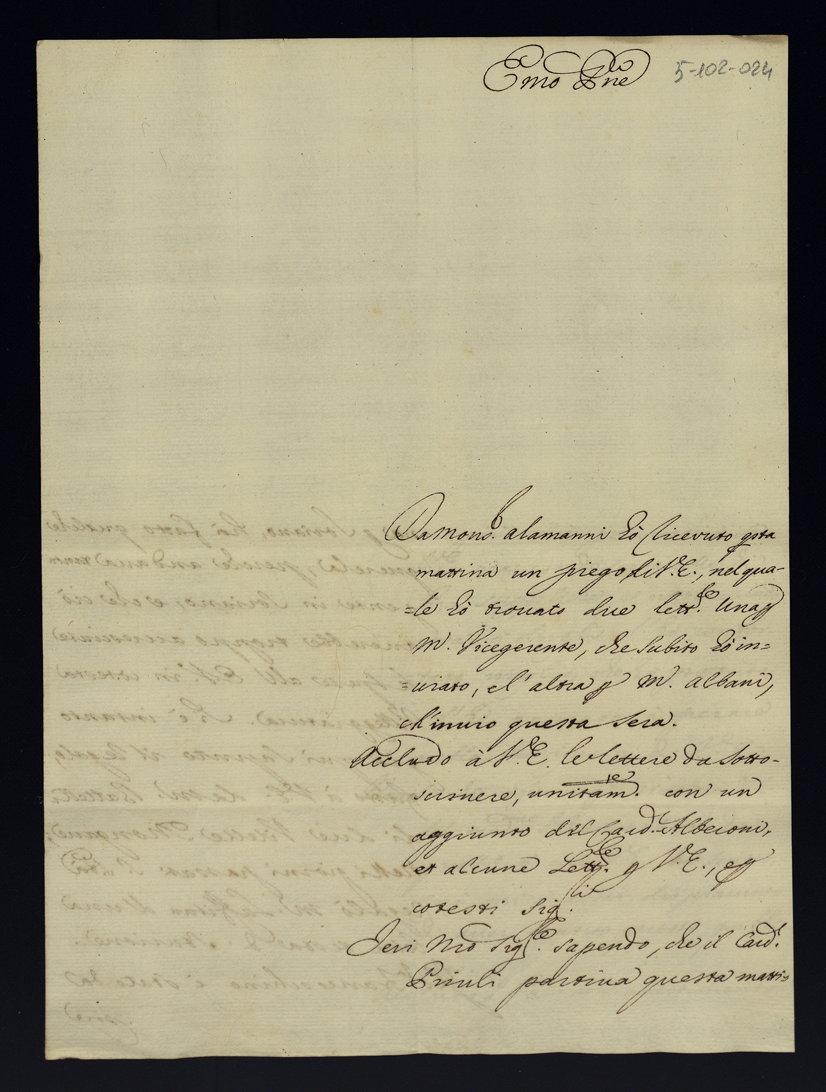 Emo Pne
5-102-024
Da Mons.r Alamanni hò ricevuto qsta
mattina un piego di V.E., nel qua-
=le hò trovato due lett.re Una p
M. Vicegerente, che subito hò in-
=viato, e l'altra p M. Albani,
ch'invio questa sera.
Accludo à V.E. le lettere da sotto-
scrivere, unitam.te con un
aggiunto del Card. Alberoni,
et alcune Lett.re p V.E., e p
cotesti Sig.ri
Jeri Nrõ Sig.re sapendo, che il Card.
Priuli partiva questa matti=